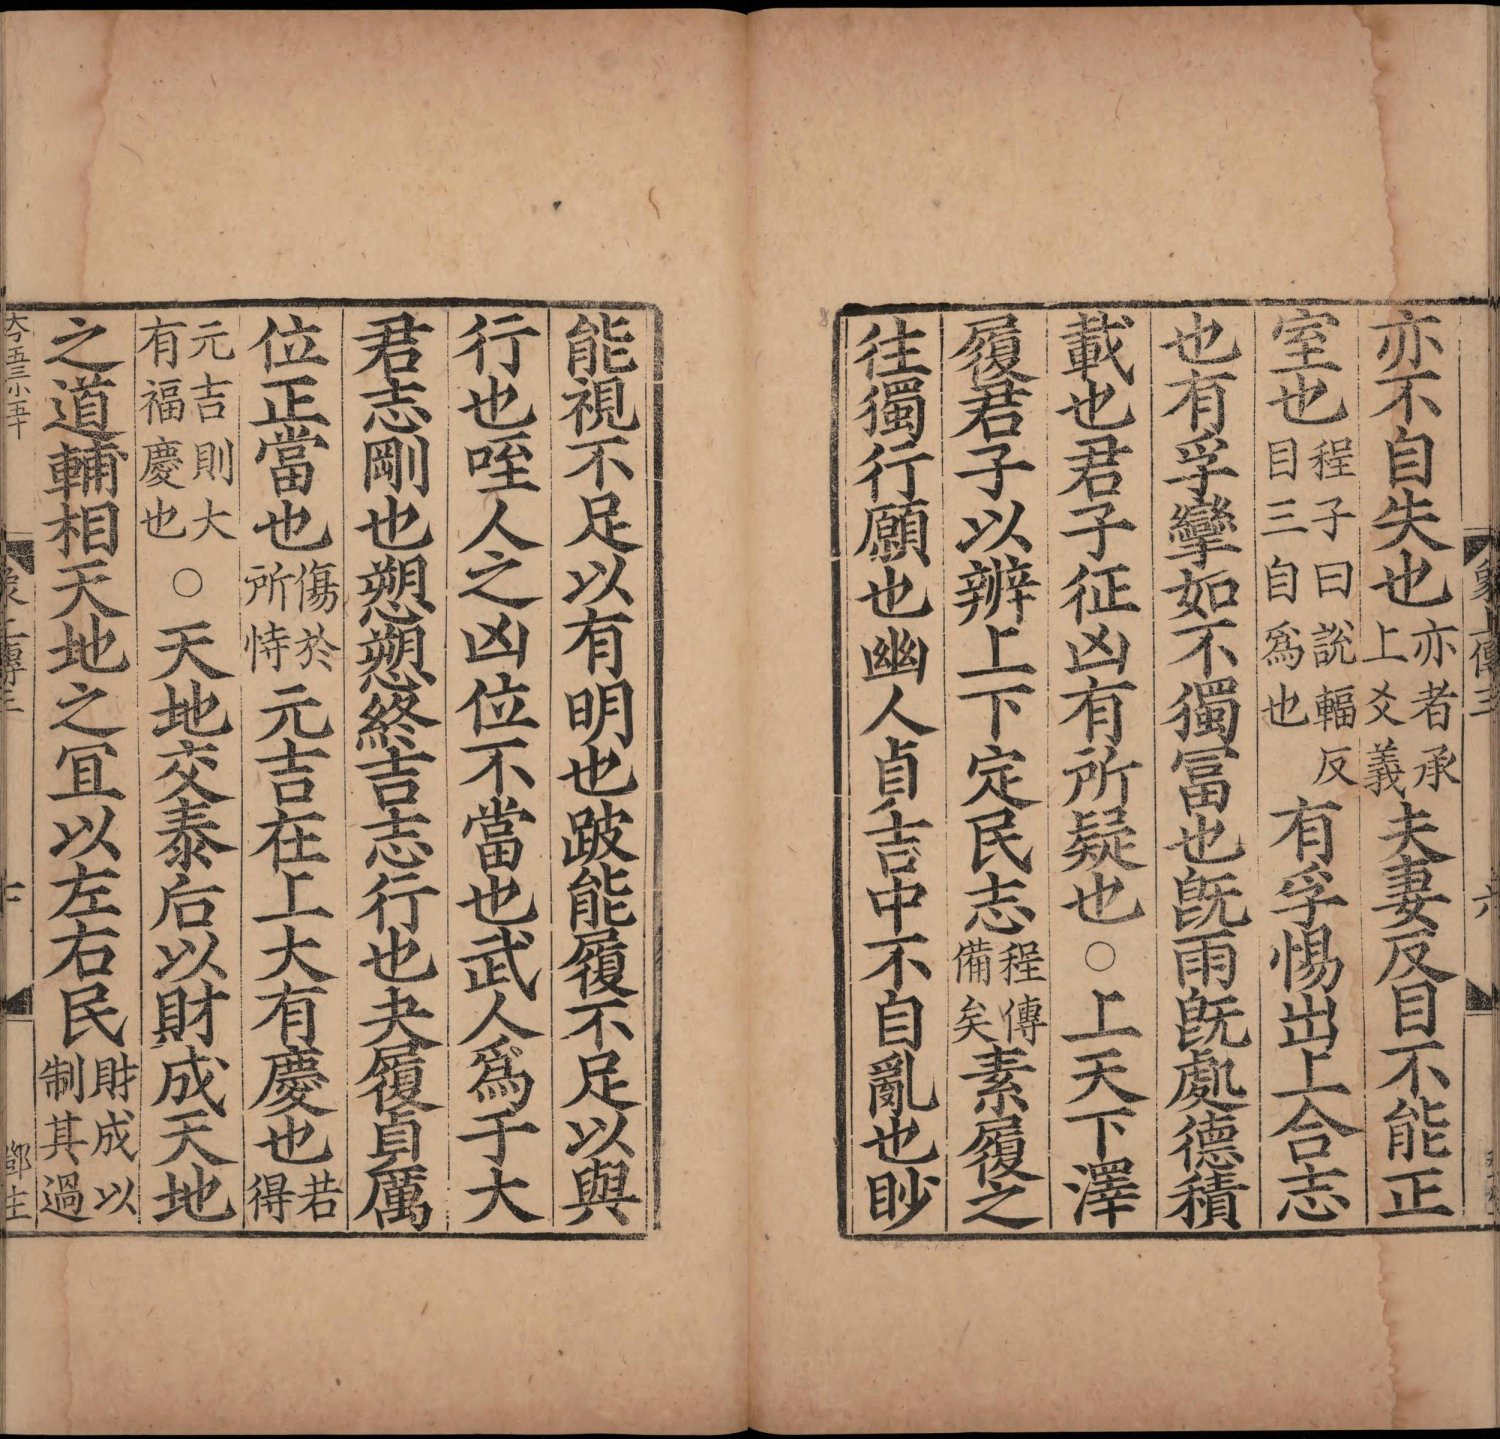 象上傳三
六
亦不自失也亦者承上爻義夫妻反目不能正
室也程子曰說輻反目三自爲也有孚惕出上合志
也有孚攣如不獨冨也旣雨旣處德積
載也君子征凶有所疑也○上天下澤
履君子以辨上下定民志程傳備矣素履之
往獨行願也幽人貞吉中不自亂也眇
能視不足以有明也跛能履不足以與
行也咥人之凶位不當也武人爲于大
君志剛也愬愬終吉志行也夬履貞厲
位正當也傷於所恃元吉在上大有慶也若得
元吉則大有福慶也○天地交泰后以財成天地
之道輔相天地之冝以左右民財成以制其過